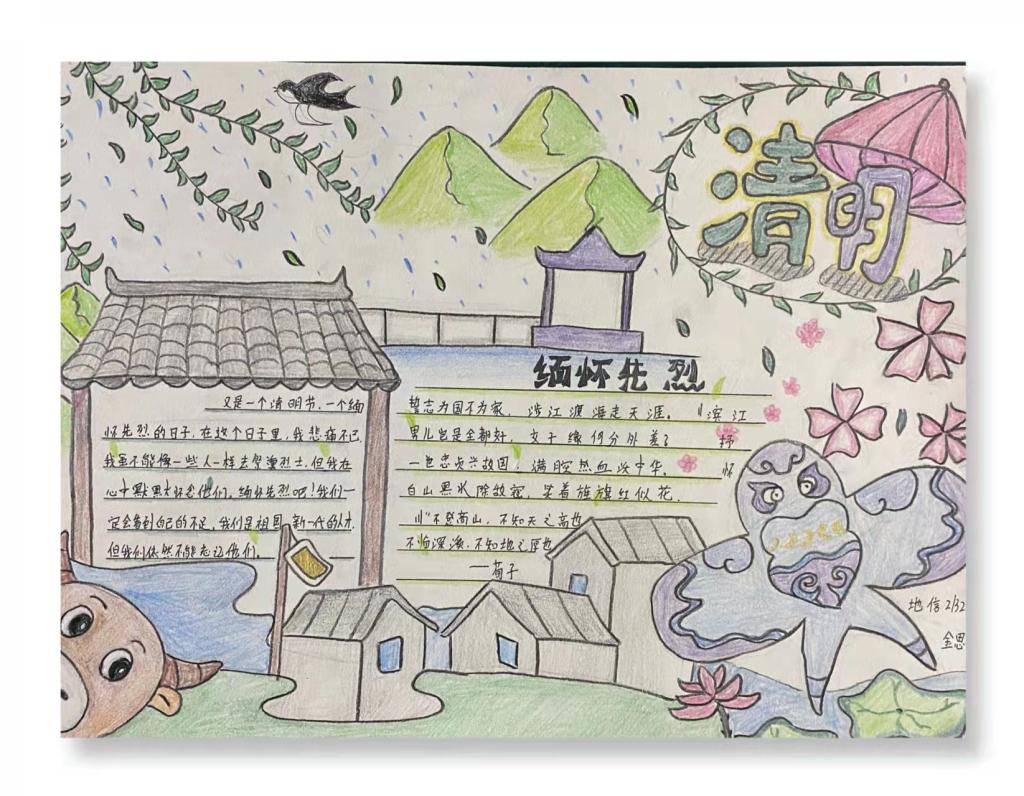 清明
缅怀先烈
又是一个清明节,一个缅
怀先烈的日子,在这个日子里,我悲痛不已,
我虽不能像一些人一样去祭奠烈士,但我在
心中默默怀念他们,缅怀先烈吧!我们一
定会看到自己的不足,我们是祖国新一代的人才,
但我们依然不能忘记他们。
誓志为国不为家,涉江渡海走天涯。
男儿岂是全都好,女子缘何分外差?
一世忠贞兴故国,满腔热血沃中华。
白山黑水除敌寇,笑看旌旗红似花。
《滨江
抒
怀
不登高山,不知天之高也
不临深溪,不知地之厚也
——荀子
地信2132
金思